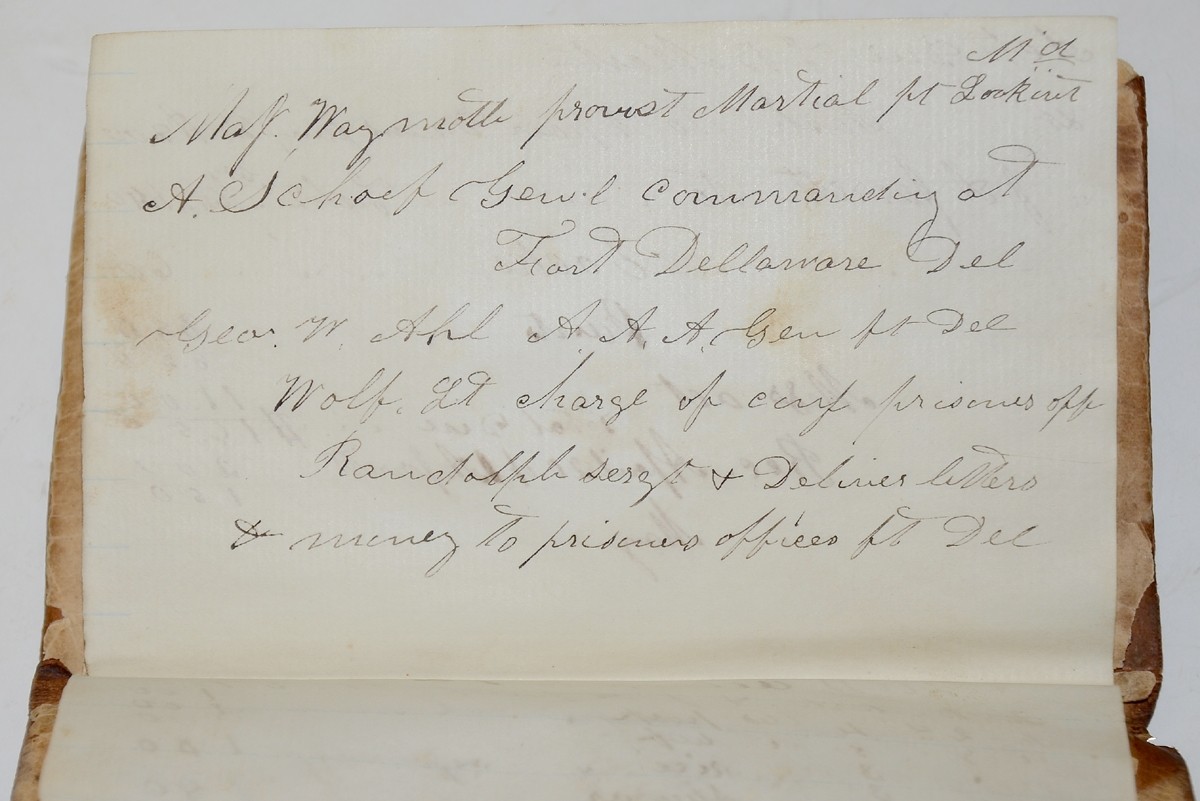 Md
Maj. Waymoth provost Martial pt Lookint
A. Schoef Genl commanding at
Fort Dellaware Del
Geo. W. Ahl A. A. A. Gen ft Del
Wolf. Lt charge of conf prisoners off
Randolph sergt & Deliver letters
& money to prisoners offices ft Del